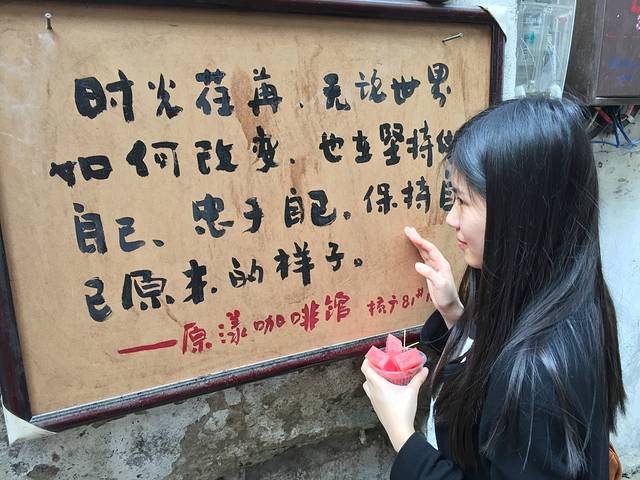 时光荏苒、无论世界
如何改变、也在坚持做
自己、忠于自己。保持自
己原来的样子。
——原漾咖啡馆